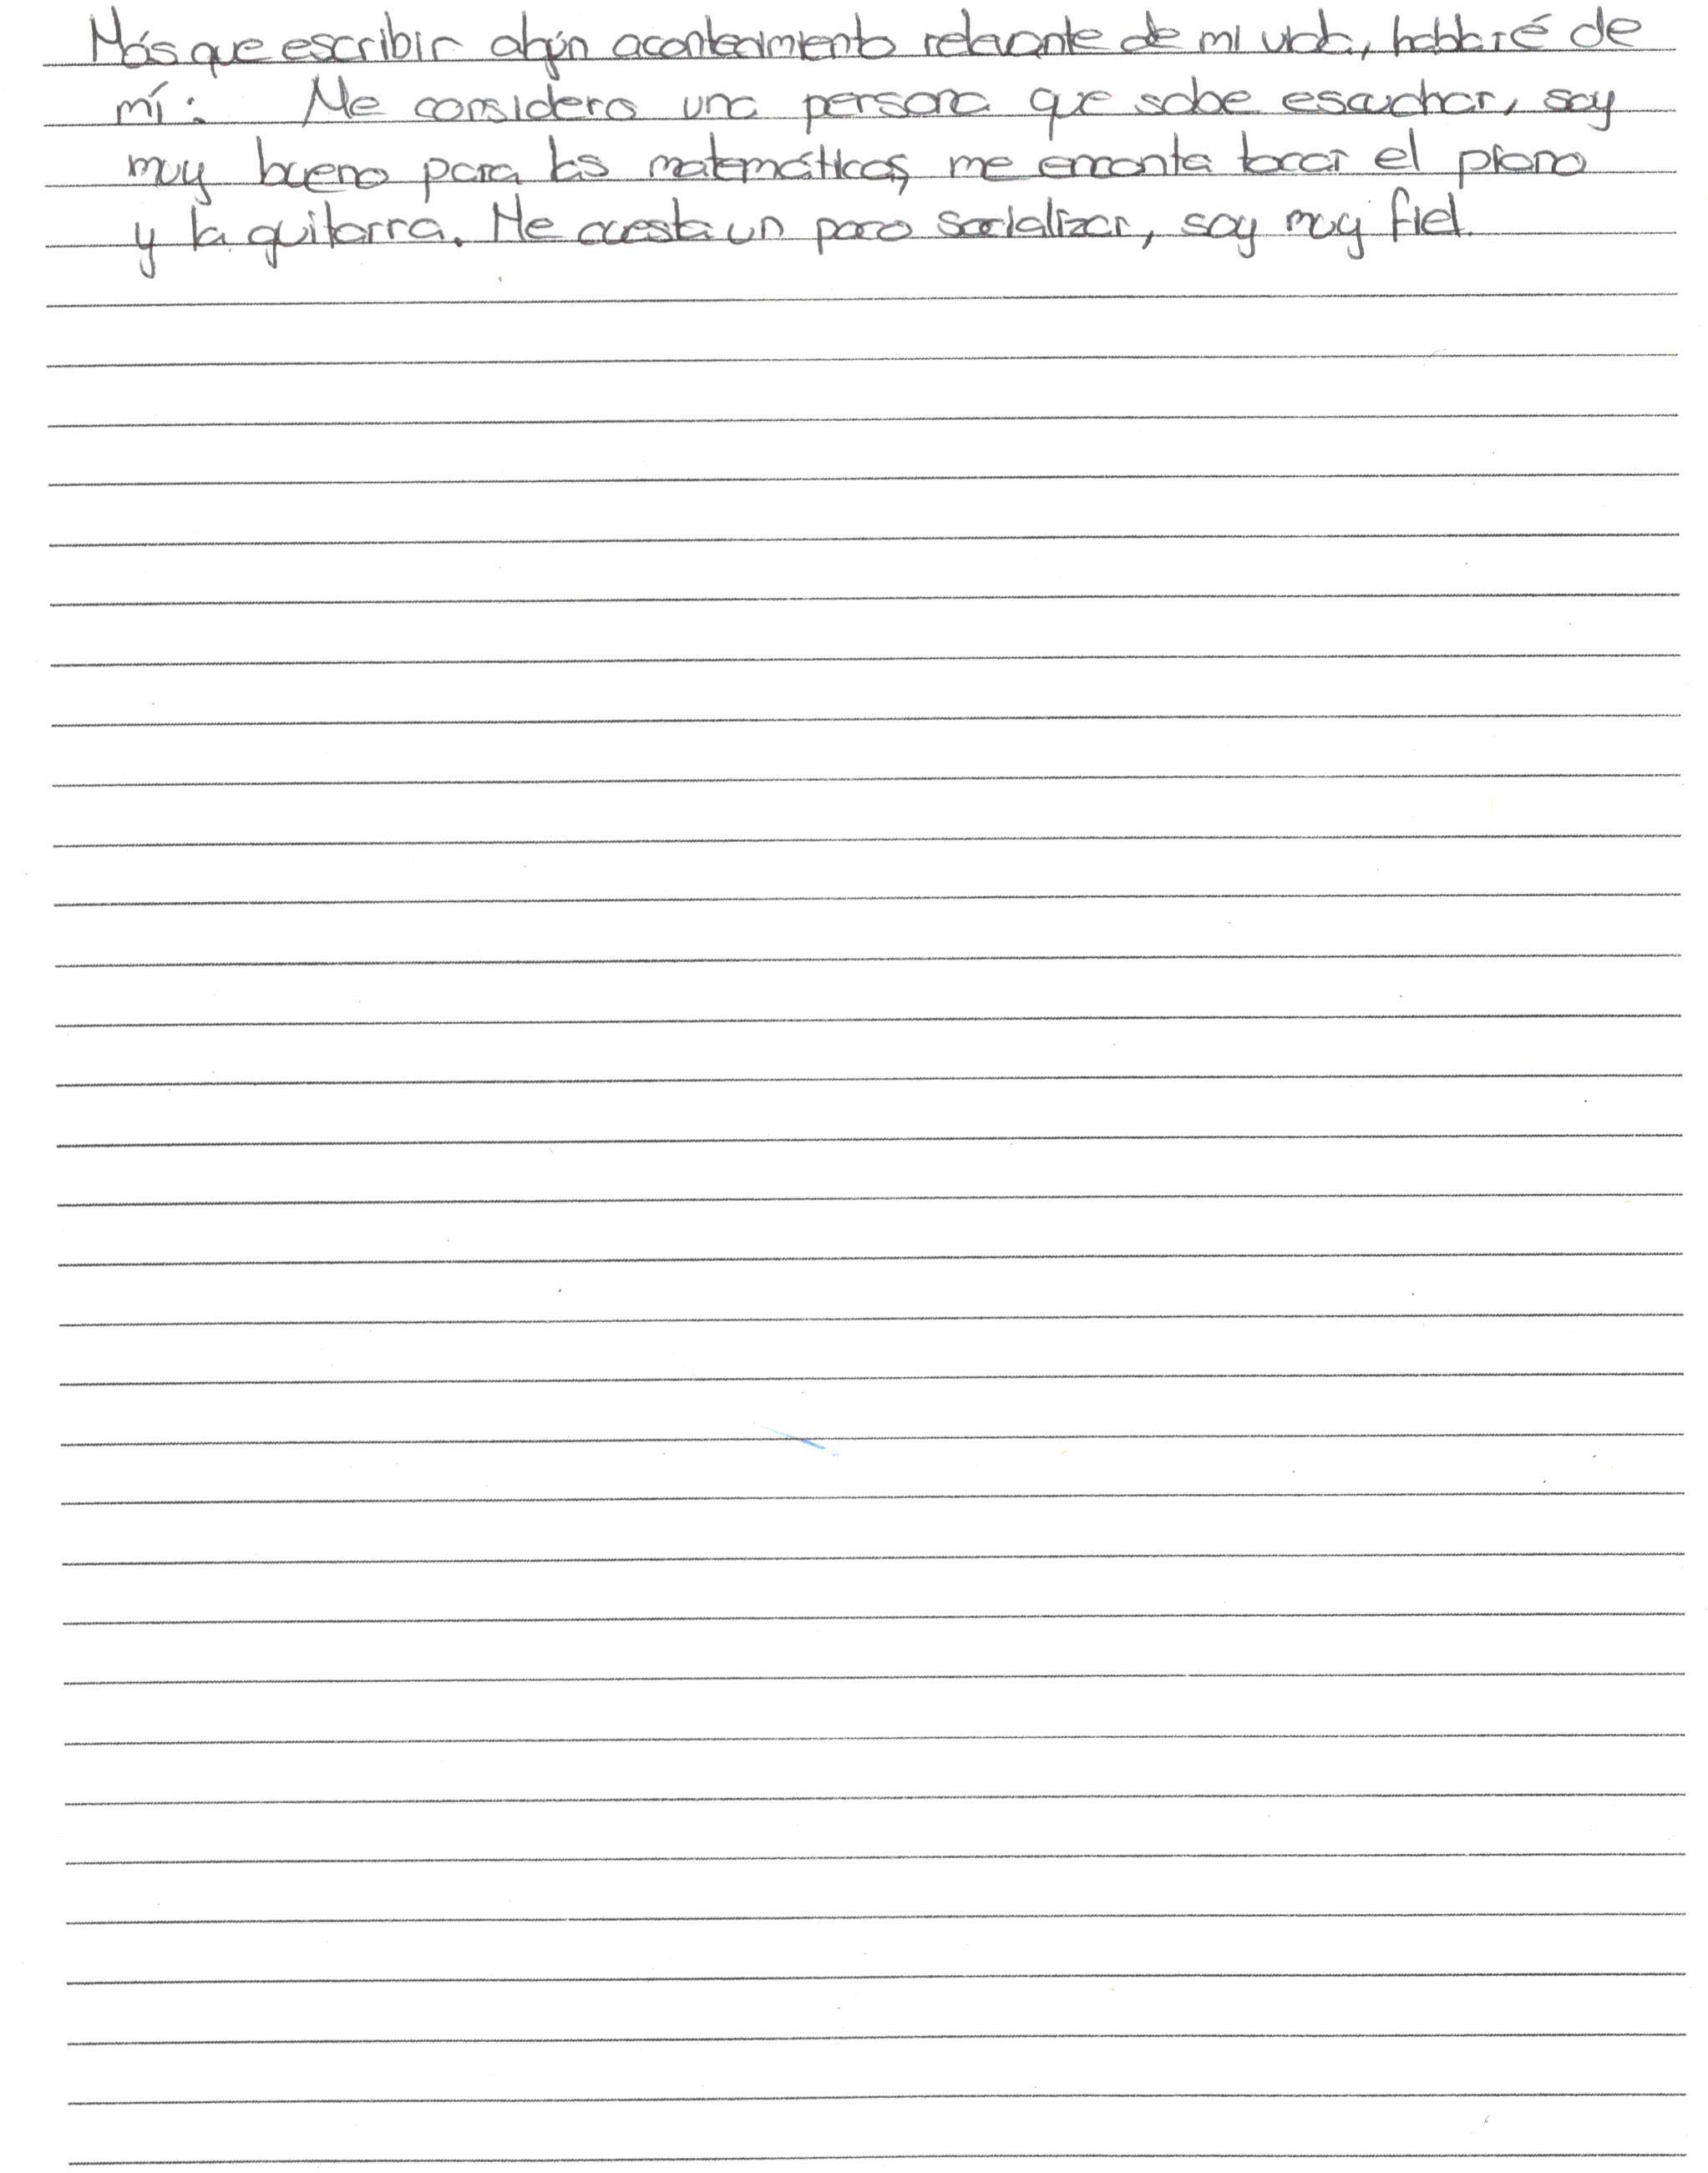 Más que escribir algún acontecimiento relevante de mi vida, hablaré de
mí: Me considero una persona que sabe escuchar, soy
muy bueno para las matemáticas, me encanta tocar el piano
y la guitarra. Me cuesta un poco socializar, soy muy fiel.